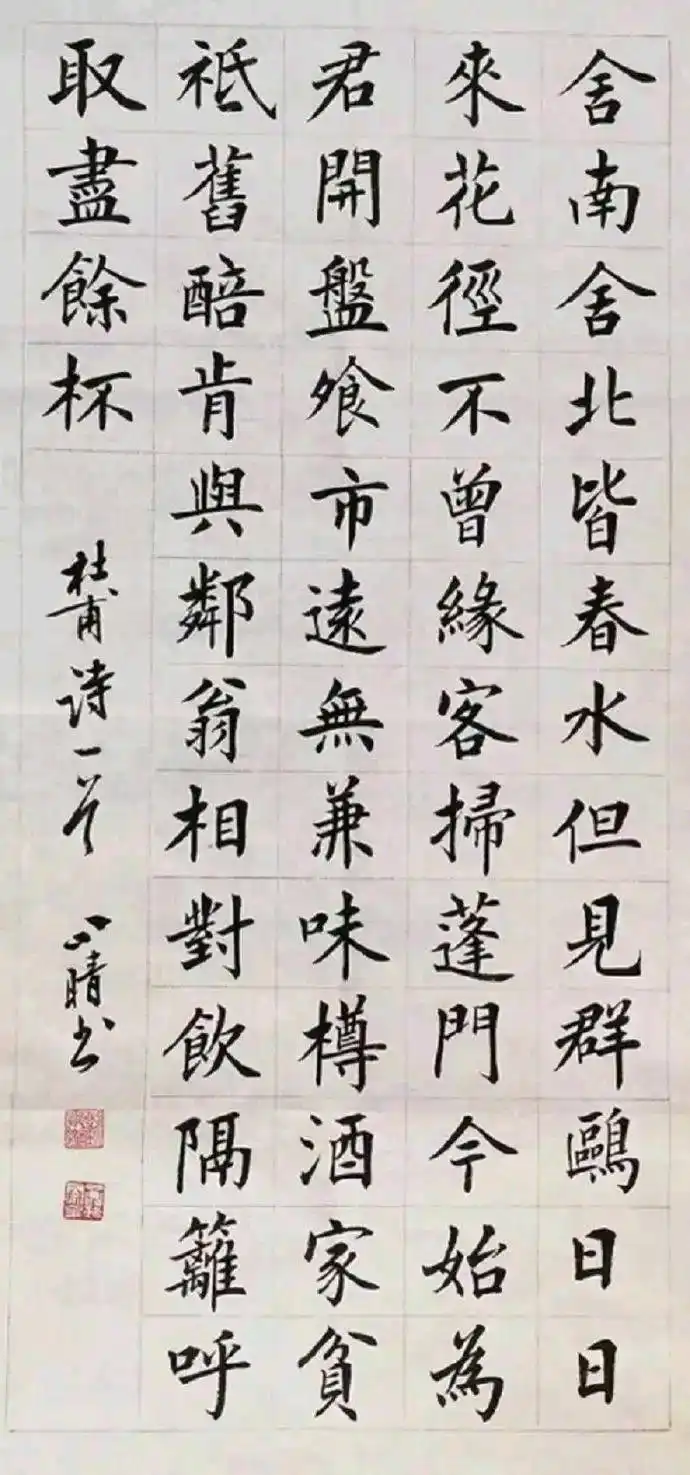 舍南舍北皆春水但見群鷗日日
來花徑不曾緣客掃蓬門今始為
君開盤飧市遠無兼味樽酒家貧
祗舊醅肯與鄰翁相對飲隔籬呼
取盡餘杯
杜甫詩一首
晴書